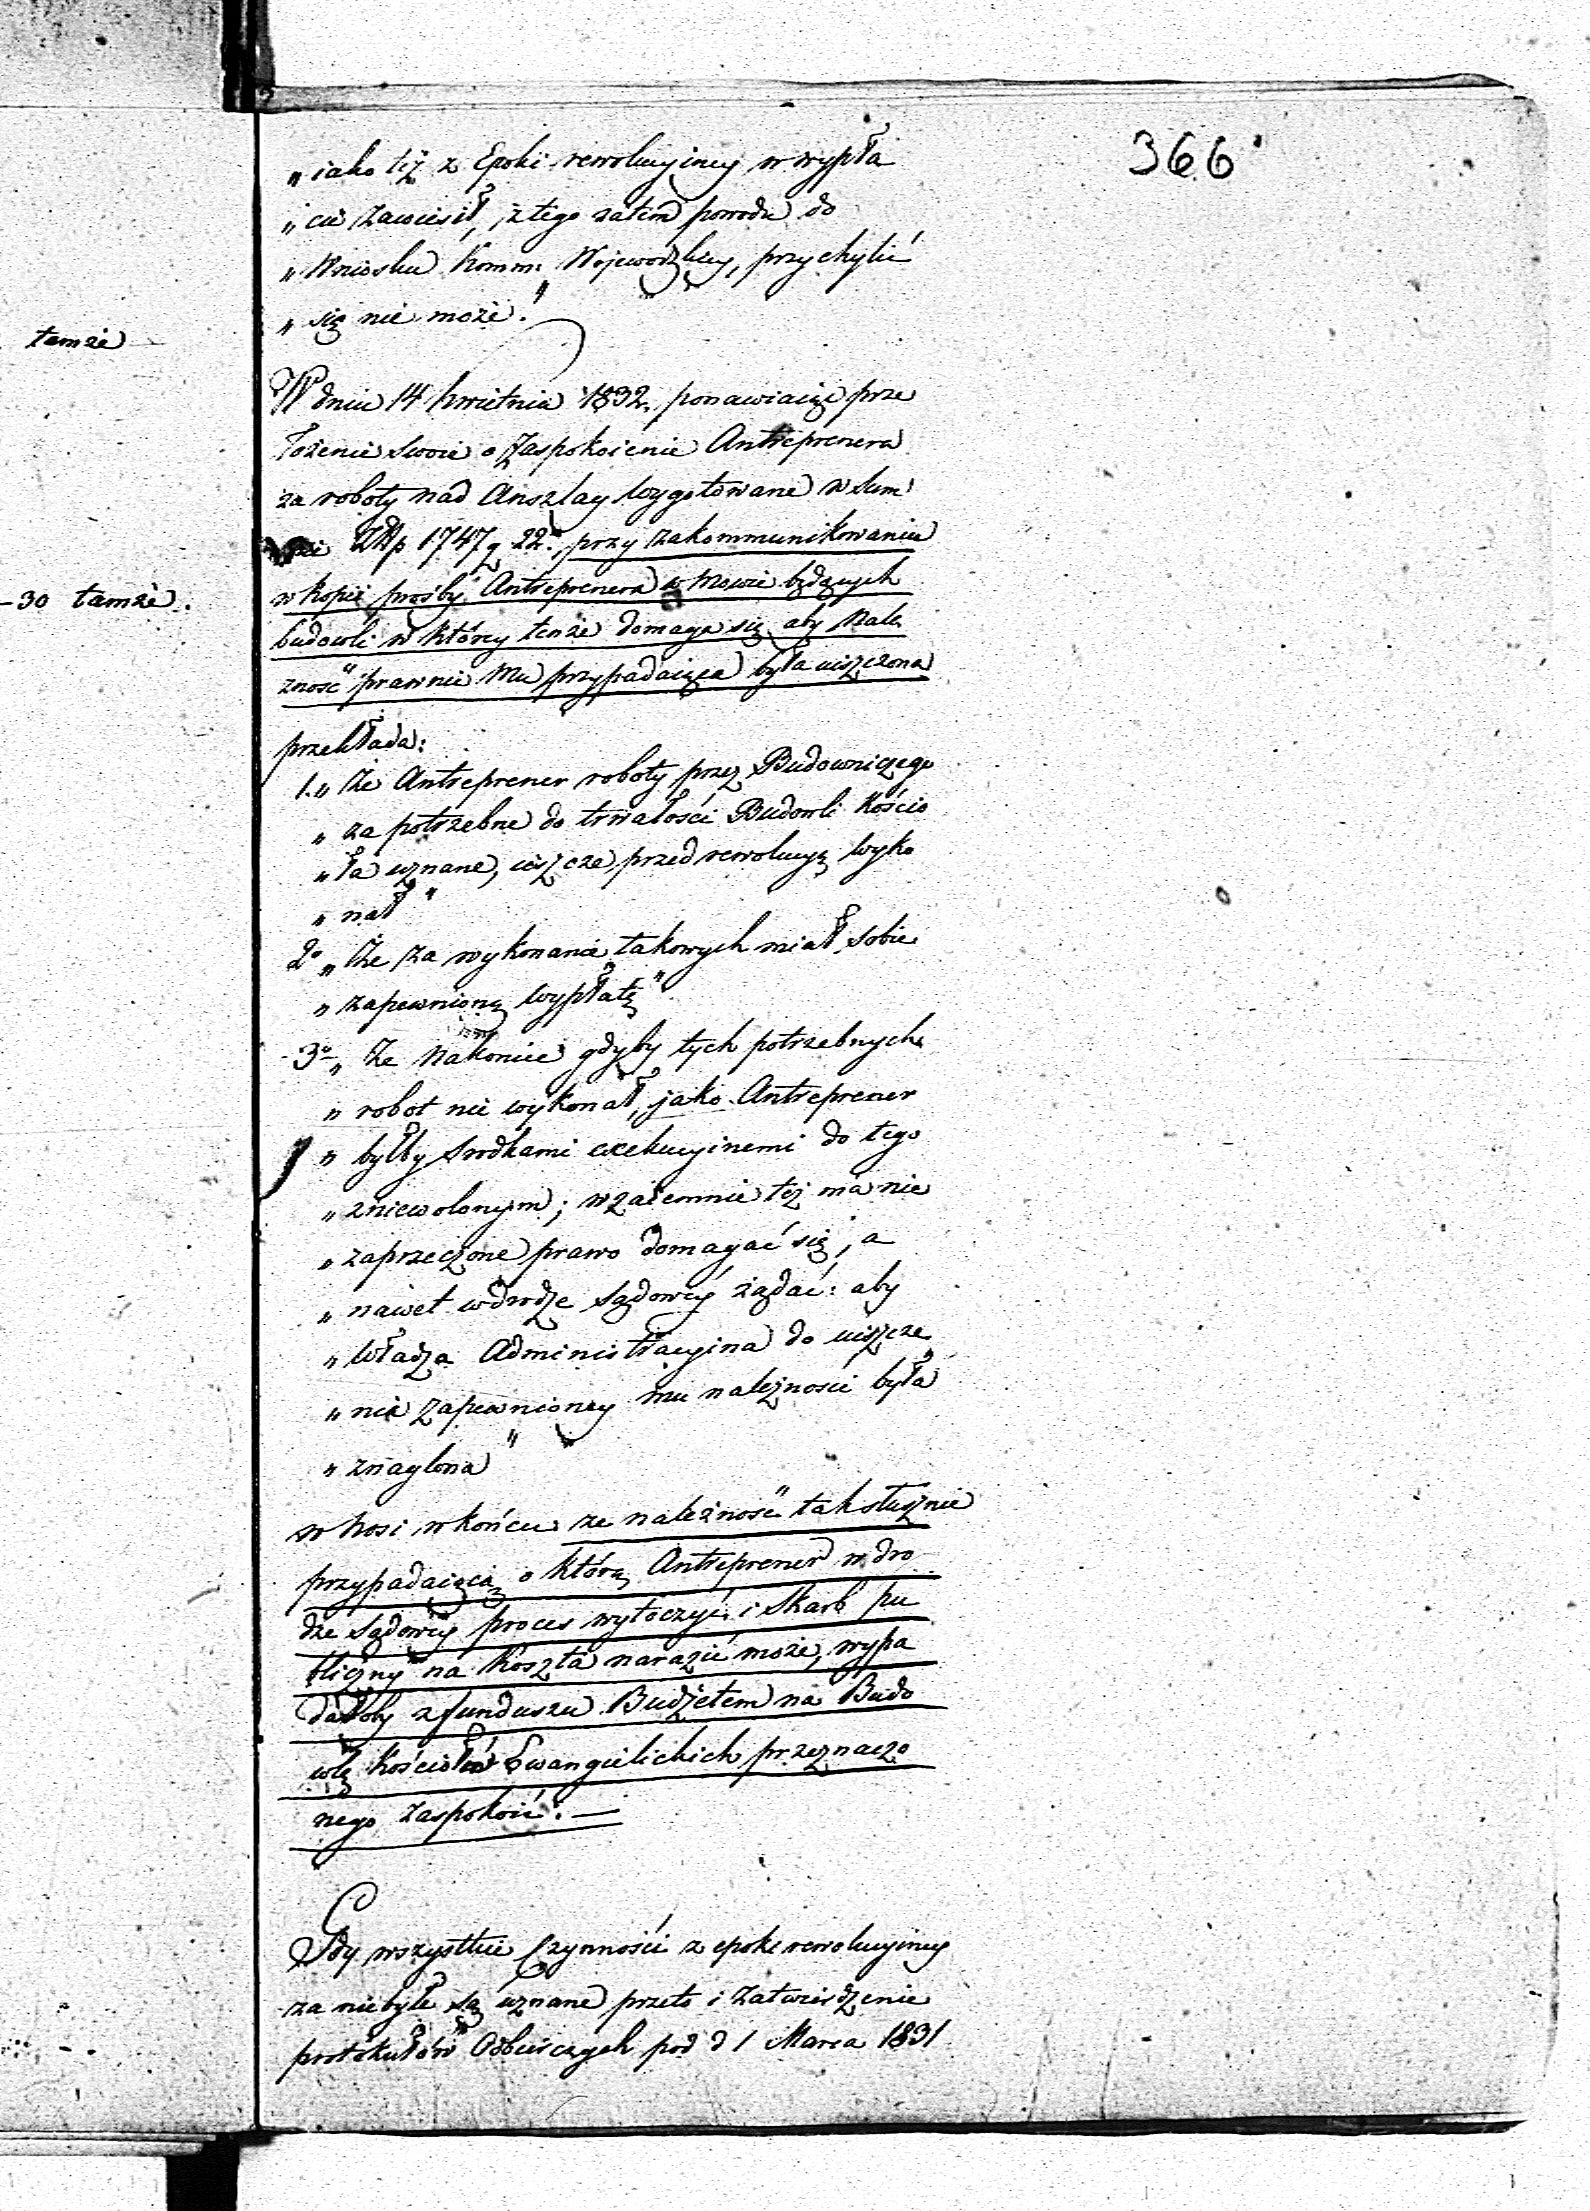 366
„ iako też z Epoki rewolucyiney w wypła
„ cie zawiesił, z tego zatem powodu do
„ Wniosku Komm: Wojewodzkiey, przychylić
„ się nie może."
tamże
W dniu 14 kwietnia 1832. ponawiaiąc prze
łożenie swoie o zaspokoienie Antreprenera
za roboty nad Anszlag wygotowane w Sum
mie ZŁp 1747 g 22., przy zakommunikowaniu
w kopii prośby Antreprenera w mowie będących
- 30 tamże.
budowli w którey tenże domaga się aby Nale
żność prawnie Mu przypadaiąca była uiszczona
przekłada:
1. „ Że Antreprener roboty przez Budowniczego
„ za potrzebne do trwałości Budowli Kościo
„ ła uznane, ieszcze przed rewolucyą wyko
„ nał "
2o „ Że za wykonanie takowych miał sobie
„ zapewnioną wypłatę "
3o „ Że nakoniec gdyby tych potrzebnych
„ robot nie wykonał, jako Antreprener
„ byłby srodkami exekucyinemi do tego
„ zniewolonym; wzaiemnie też ma nie
„ zaprzeczone prawo domagać się, a
„ nawet w drodze Sądowey żądać: aby
„ Władza Administracyina do uiszcze
„ nia zapewnioney mu należności była
„ znaglona "
wnosi w końcu że należność tak słusznie
przypadaiącą o którą Antreprener w dro
dze Sądowey proces wytoczyć i Skarb pu
bliczny na Koszta narazić może, wypa
dałoby z funduszu Budżetem na Budo
wlę Kościołów Ewangielickich przeznaczo
nego zaspokoić. —
Gdy wszystkie Czynności z epoki rewolucyiney
za niebyłe są uznane przeto i zatwierdzenie
protokułów Odbiorczych pod d 1 Marca 1831